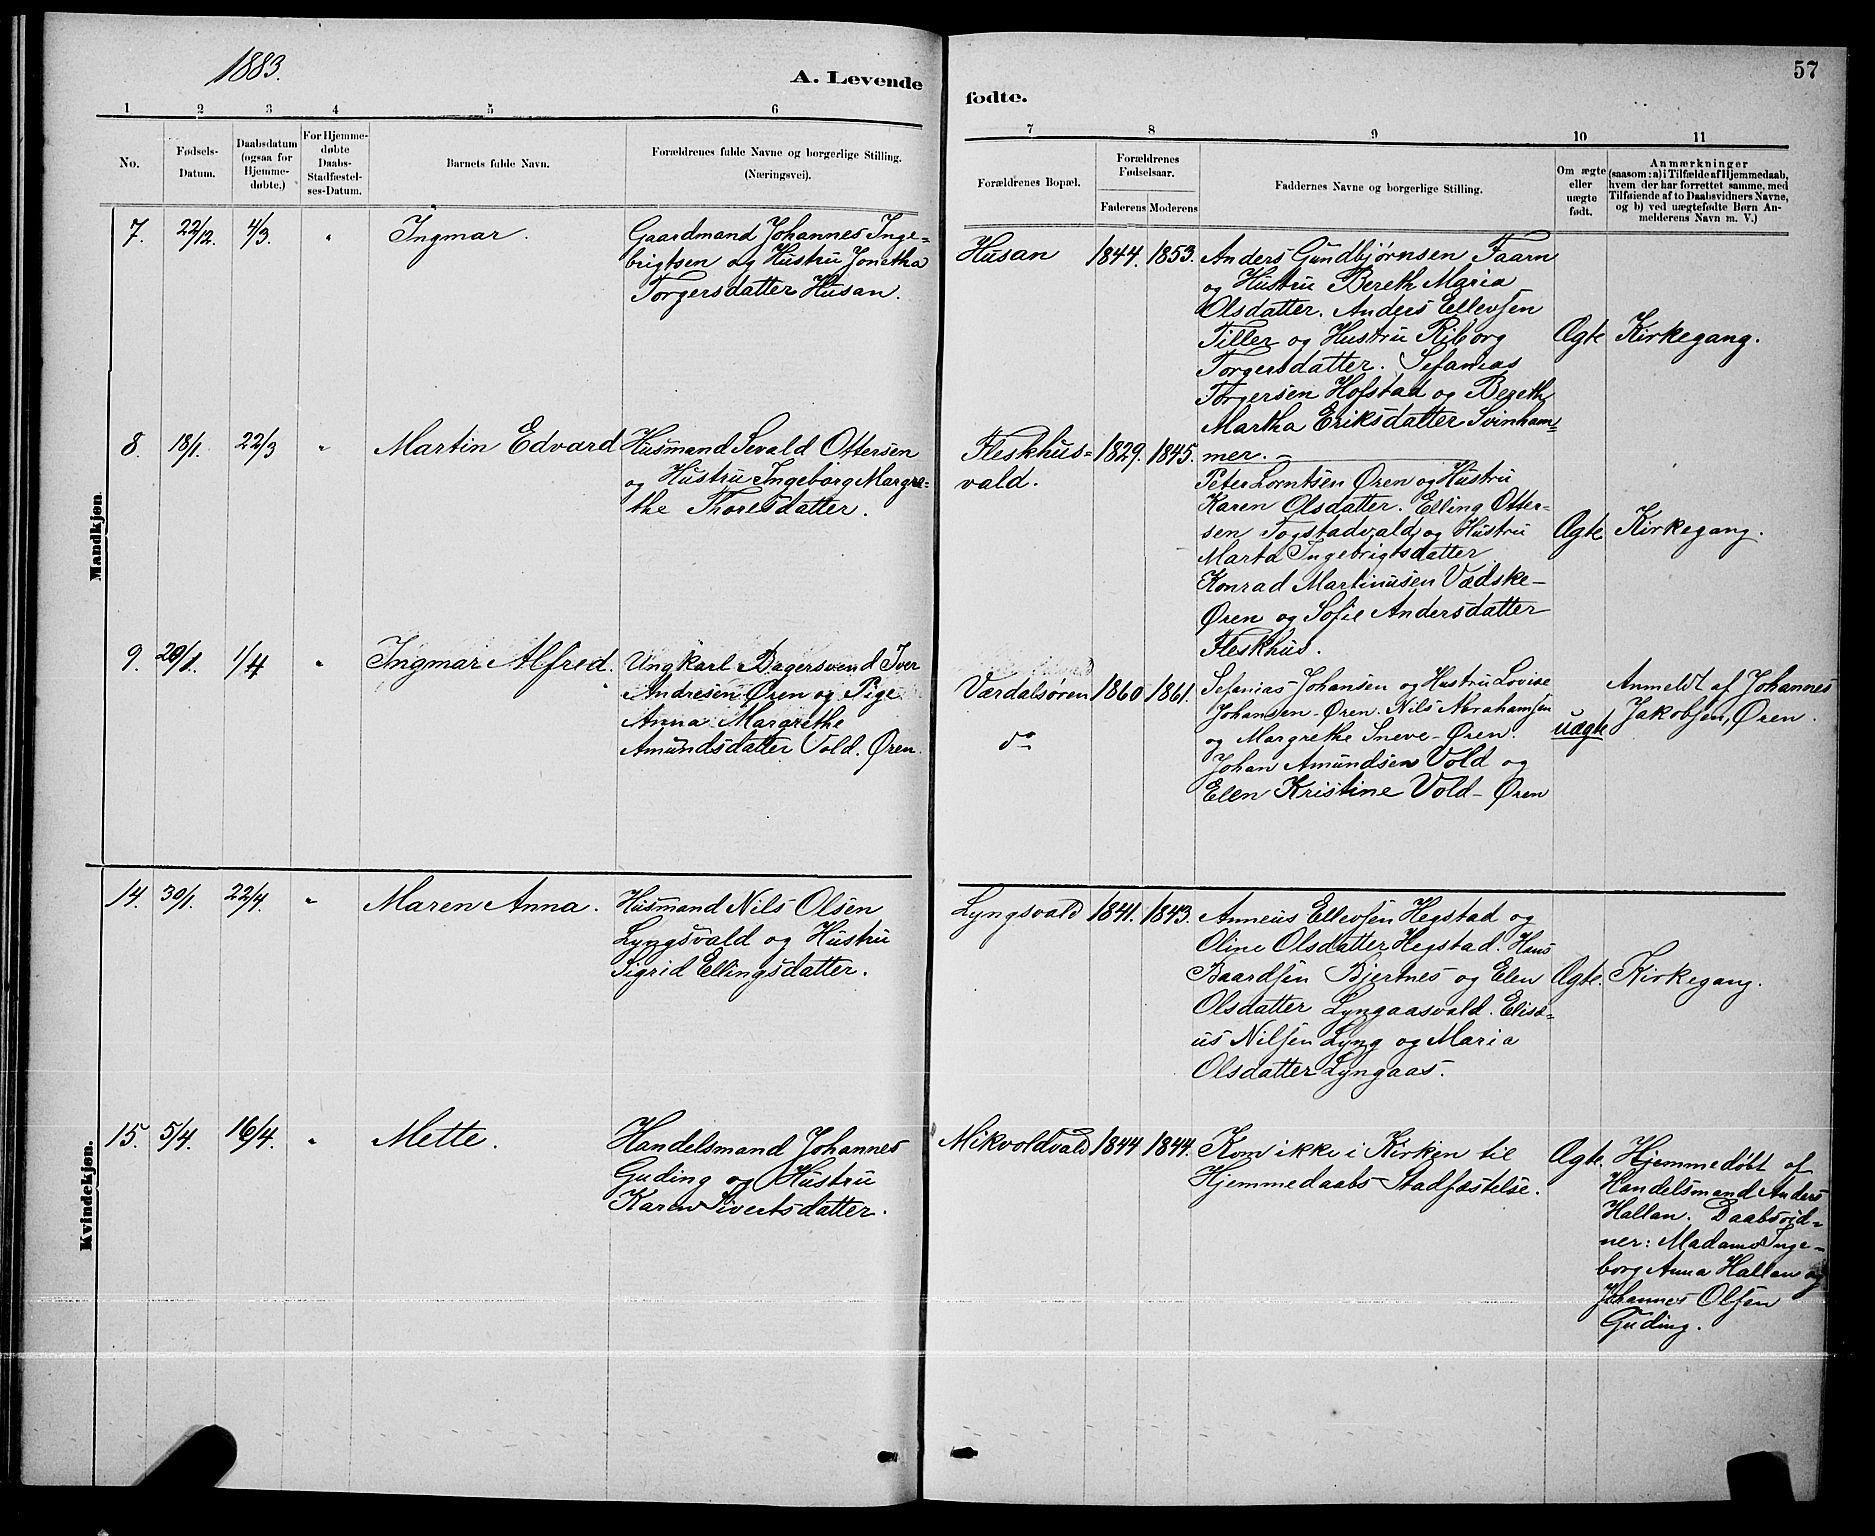 1883.
A. Levende
fødte.
57
1 2 3 4 5 6 7 8 9 10 11
No.
Fødsels-
Datum.
Daabsdatum
(ogsaa for
Hjemme-
døbte.)
For Hjemme-
døbte
Daabs-
Stadfæstel-
ses-Datum.
Barnets fulde Navn.
Forældrenes fulde Navne og borgerlige Stilling.
(Næringsvei).
Forældrenes Bopæl.
Forældrenes
Fødselsaar.
Faderens Moderens
Faddernes Navne og borgerlige Stilling.
Om ægte
eller
uægte
født.
Anmærkninger
(saasom: a) i Tilfælde af Hjemmedaab,
hvem der har forrettet samme, med
Tilføiende af to Daabsvidners Navne,
og b) ved uægtefødte Børn An-
melderens Navn m. V.)
Mandkjøn.
7. 22/12. 4/3. " Ingmar.
Gaardmand Johannes Inge-
brigtsen og Hustru Jonetha
Torgersdatter Husan.
Husan 1844. 1853.
Anders Gundbjørnsen Faarn
og Hustru Bereth Maria
Olsdatter. Anders Ellevsen
Tiller og Hustru Riborg
Torgersdatter. Sefanias
Torgersen Hofstad og Bereth
Martha Eriksdatter Svinham-
mer.
Ægte Kirkegang.
8. 18/1. 22/3 " Martin Edvard
Husmand Sevald Ottersen
og Hustru Ingeborg Margre-
the Thoresdatter.
Fleskhus-
vald.
1829. 1845.
Peter Lorntsen Øren og Hustru
Karen Olsdatter. Elling Otter-
sen Togstadvald og Hustru
Marta Ingebrigtsdatter
Konrad Martinusen Vædske-
Øren og Sofie Andersdatter
Fleskhus.
Ægte Kirkegang.
9. 20/1. 1/4 " Ingmar Alfred.
Ungkarl Bagersvend Iver
Andresen Øren og Pige
Anna Margrethe
Amundsdatter Vold. Øren.
Værdalsøren
do
1860 1861.
Sefanias Johansen og Hustru Lovise
Johansen-Øren. Nils Abrahamsen
og Margrethe Sneve-Øren.
Johan Amundsen Vold og
Elen Kristine Vold-Øren
uægte
Anmeldt af Johannes
Jakobsen, Øren.
Kvindekjøn.
14. 30/1. 22/4. " Maren Anna.
Husmand Nils Olsen
Lyngsvald og Hustru
Sigrid Ellingsdatter.
Lyngsvald 1841. 1843.
Anneus Ellevsen Hegstad og
Oline Olsdatter Hegstad. Hans
Baardsen Bjertnes og Elen
Olsdatter Lyngaasvald. Elisæ-
us Nilsen Lyng og Maria
Olsdatter Lyngaas.
Ægte. Kirkegang.
15. 5/4. 16/4. " Mette.
Handelsmand Johannes
Guding og Hustru
Karen Sivertsdatter.
Mikvoldvald 1844 1844.
Kom ikke i Kirken til
Hjemmedaabs-Stadfæstelse.
Ægte.
Hjemmedøbt af
Handelsmand Anders
Hallan. Daabsvid-
ner: Madame Inge-
borg Anna Hallan og
Johannes Olsen
Guding.